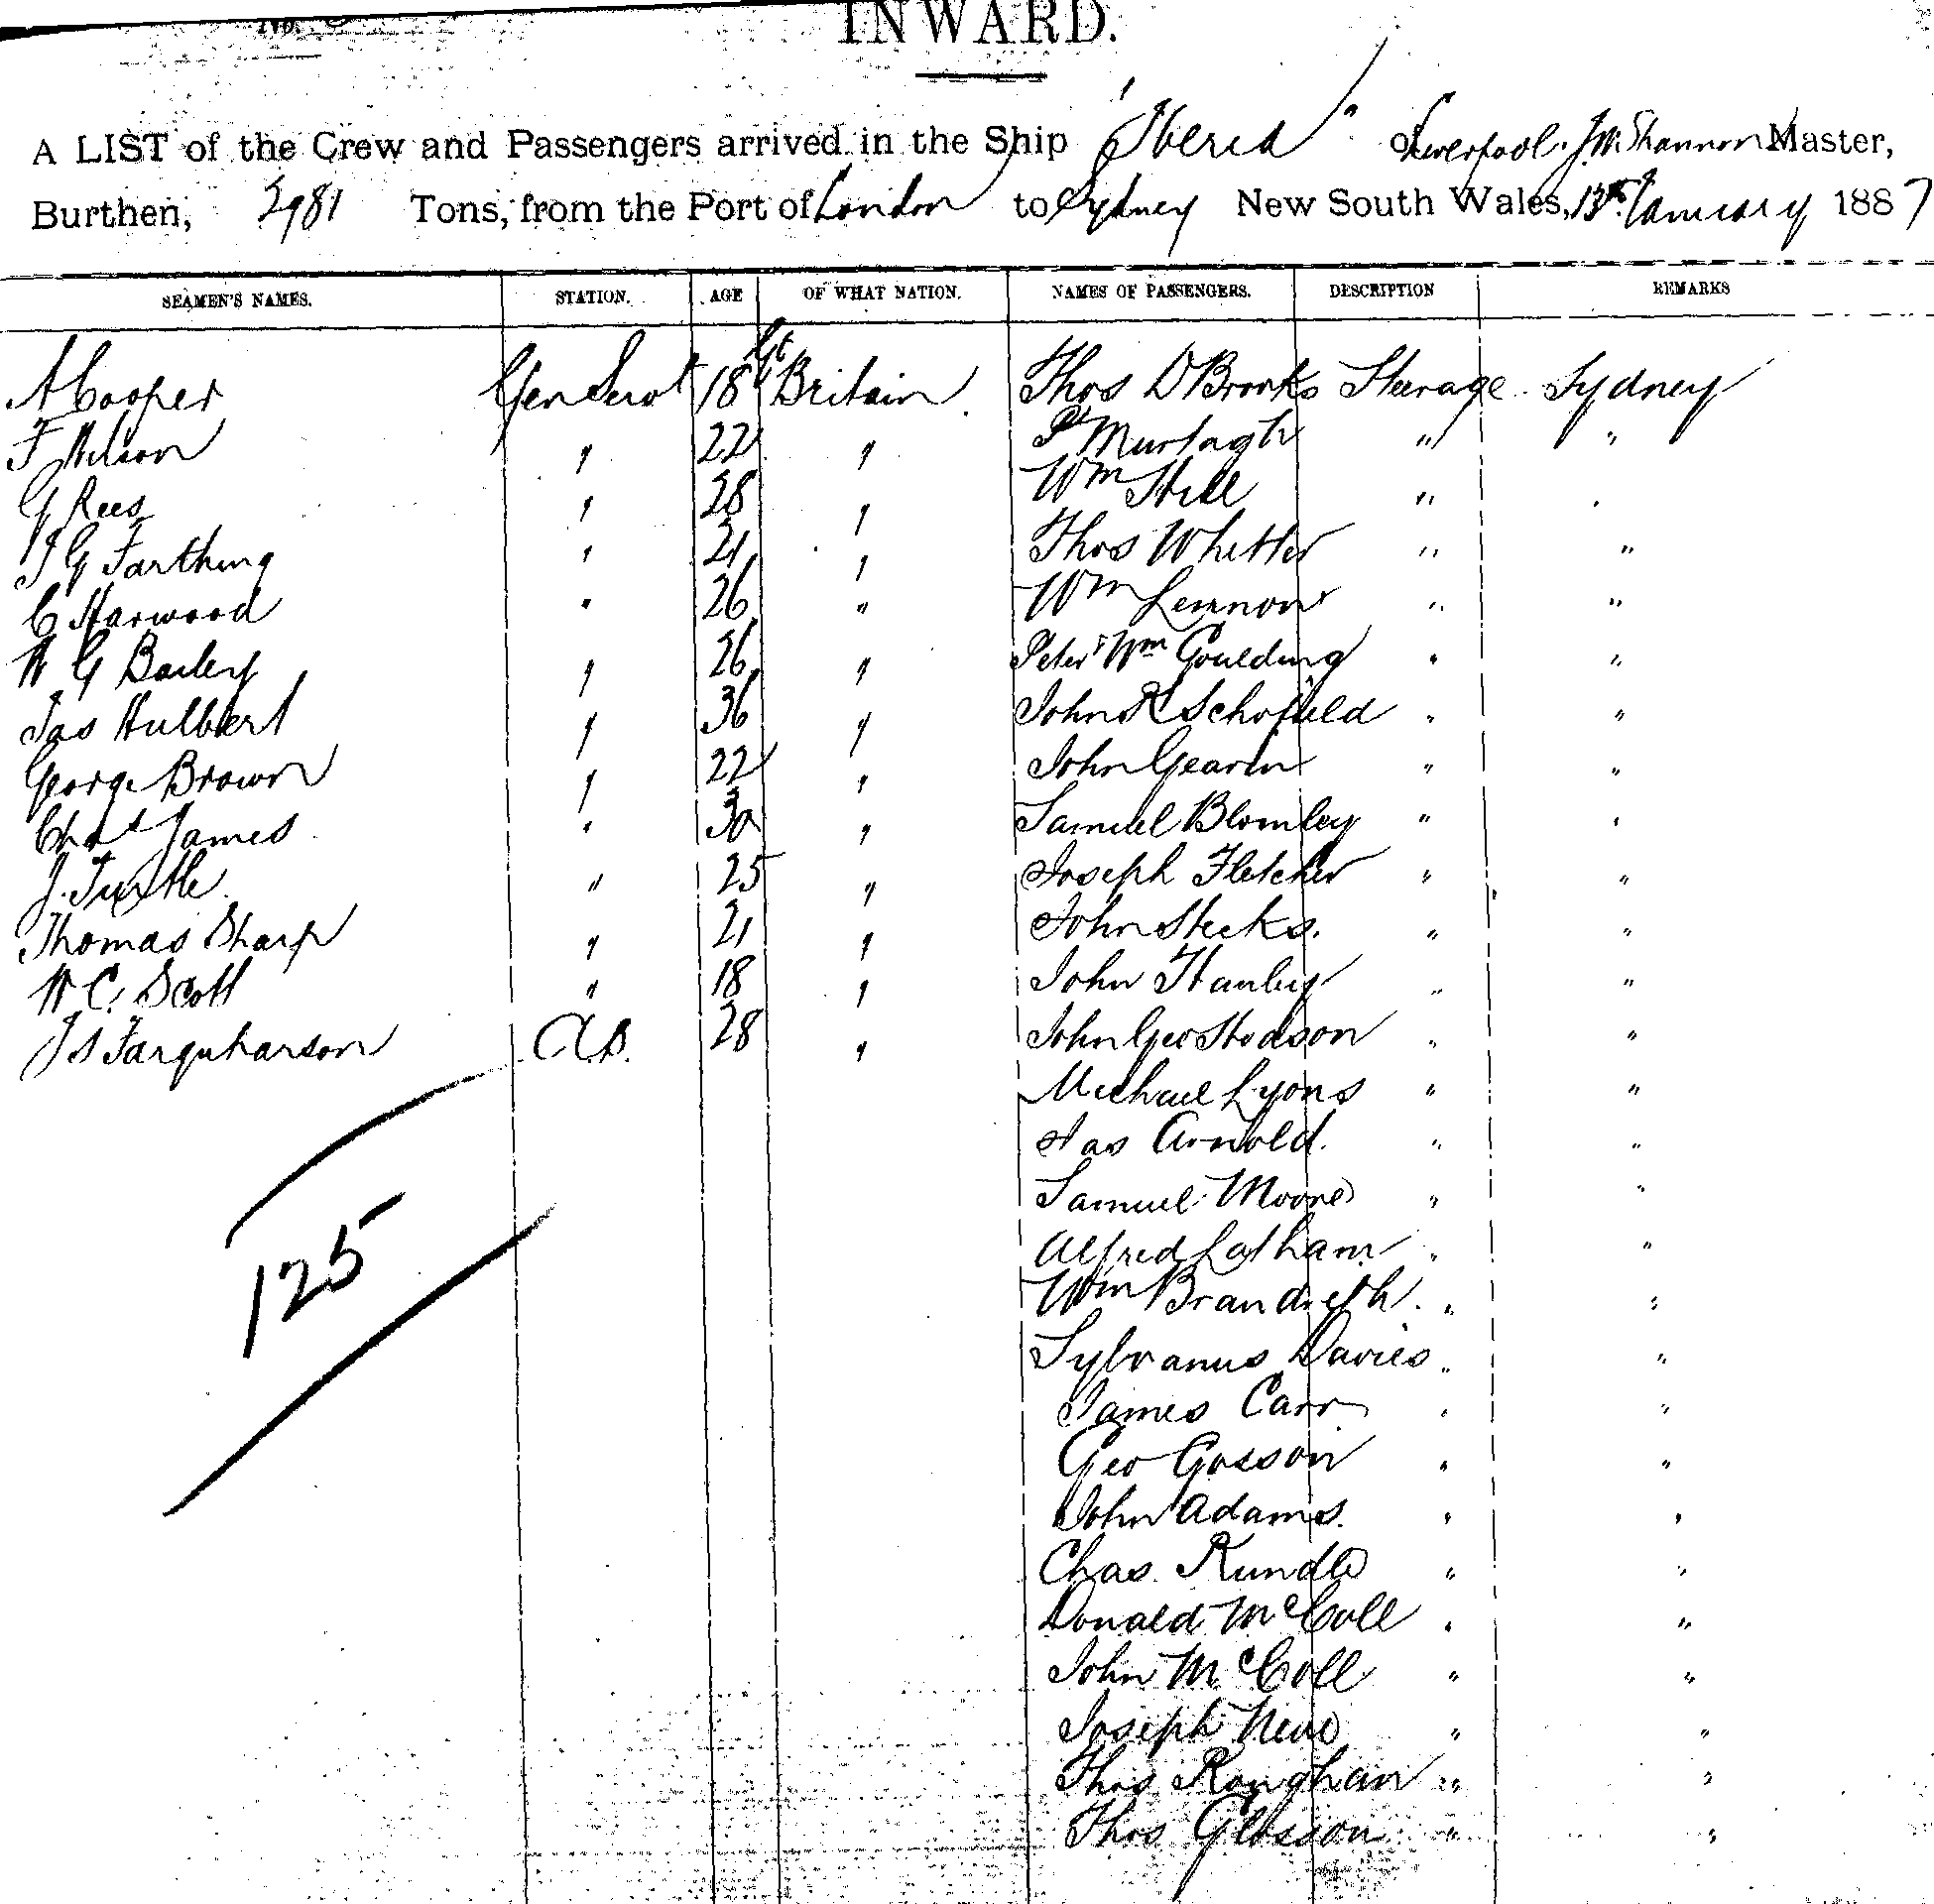 INWARD.
A LIST of the Crew and Passengers arrived in the Ship "Iberia" of Liverpool. J.W. Shannon Master,
Burthen, 2981 Tons, from the Port of London to Sydney New South Wales, 13th January 1887
SEAMEN'S NAMES. STATION. AGE OF WHAT NATION. NAMES OF PASSENGERS. DESCRIPTION REMARKS
A Cooper Gen Servt 18 Gt Britain. Thos D Brooks Steerage Sydney
F Wilson " 22 " Pk Murtagh " "
G Rees " 28 " Wm Hill " "
J G Farthing " 21 " Thos Whetter " "
C Harwood " 26 " Wm Lennon " "
W G Bailey " 26 " Peter Wm Goulding " "
Jas Hulbert " 36 " John R Schofield " "
George Brown " 22 " John Gearin " "
Chas James " 30 " Samuel Blomley " "
J. Turtle " 25 " Joseph Fletcher " "
Thomas Sharp " 21 " John Steeks. " "
W C. Scott " 18 " John Stanley " "
J S Farquharson A.B. 28 " John Geo Hodson " "
Michael Lyons " "
Jas Arnold. " "
Samuel Moore " "
Alfred Latham " "
125
Wm Brandreth. " "
Sylvanus Davies " "
James Carr " "
Geo Gasson " "
John Adams. " "
Chas. Rundle " "
Donald McColl " "
John McColl " "
Joseph Neve " "
Thos Ronghan " "
Thos Glasson " "